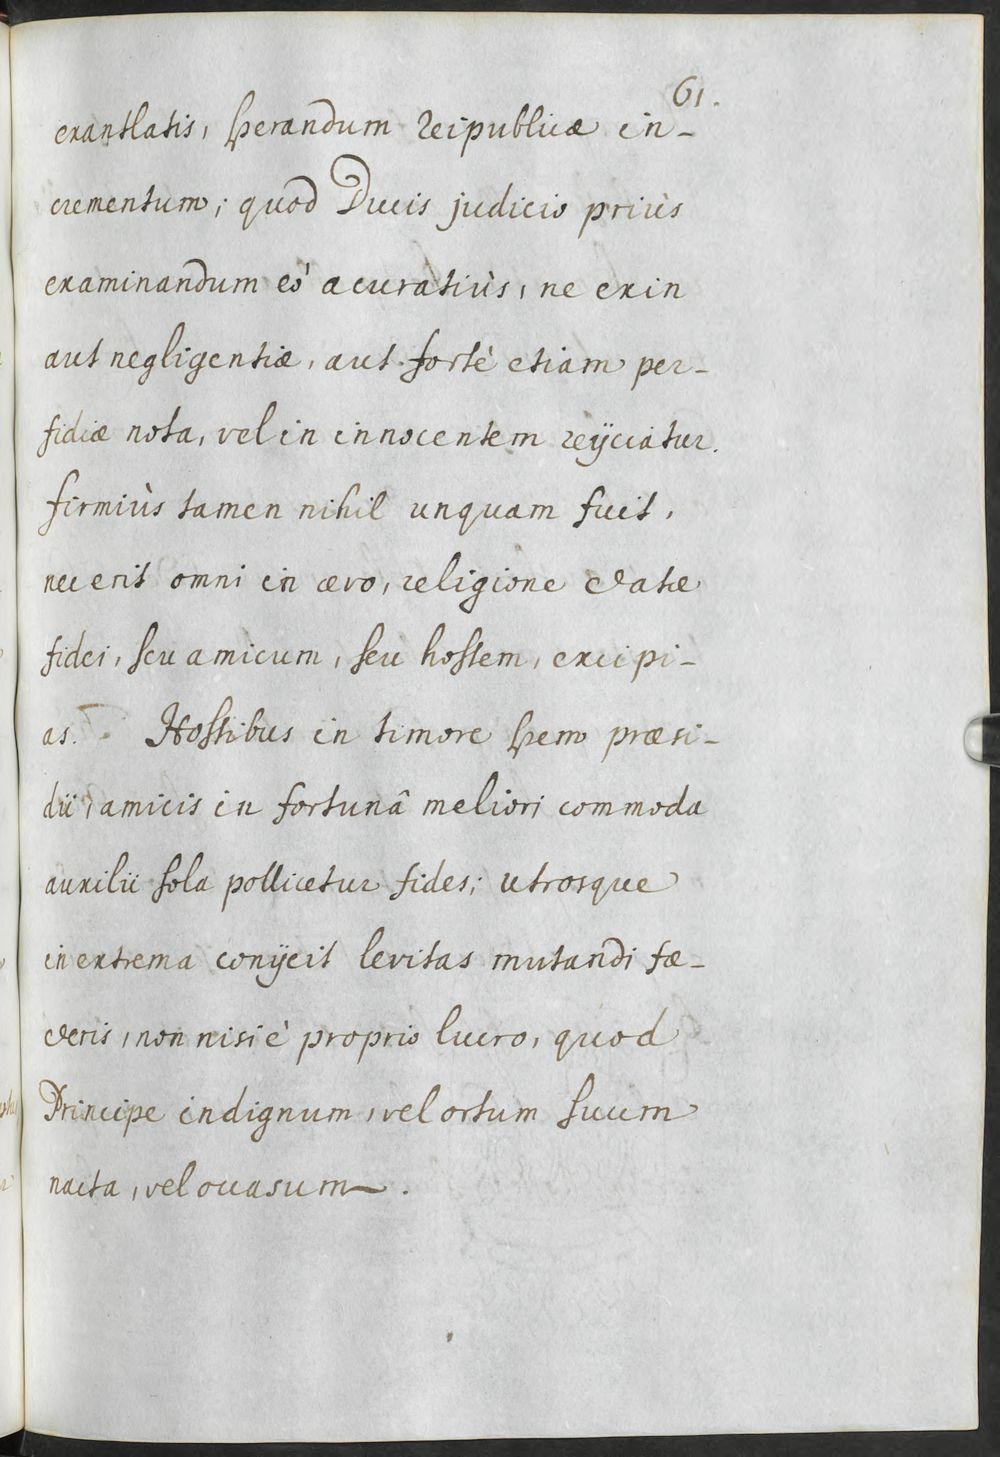 61.
exantlatis, sperandum reipublicæ in-
crementum; quod Ducis judicio priùs
examinandum eò acuratiùs, ne exin
aut negligentiæ, aut fortè etiam per-
fidiæ nota, vel in innocentem reijciatur.
firmiùs tamen nihil unquam fuit,
nec erit omni in ævo, religione datæ
fidei, seu amicum, seu hostem, excipi-
as. Hostibus in timore spem præsi-
dii, amicis in fortunâ meliori commoda
auxilii sola pollicetur fides; utrosque
in extrema conijcit levitas mutandi fæ-
deris, non nisi è proprio lucro, quod
Principe indignum, vel ortum suum
nacta, vel occasum.